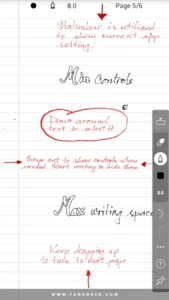 8.0
Page 5/6
Statusbar is utilized
to show current app
setting
Min Controls
Draw around
text to select it
Swipe out to show controls when
needed. Start writing to hide them
8.0
Max writing space
Keep dragging up
to turn to next page